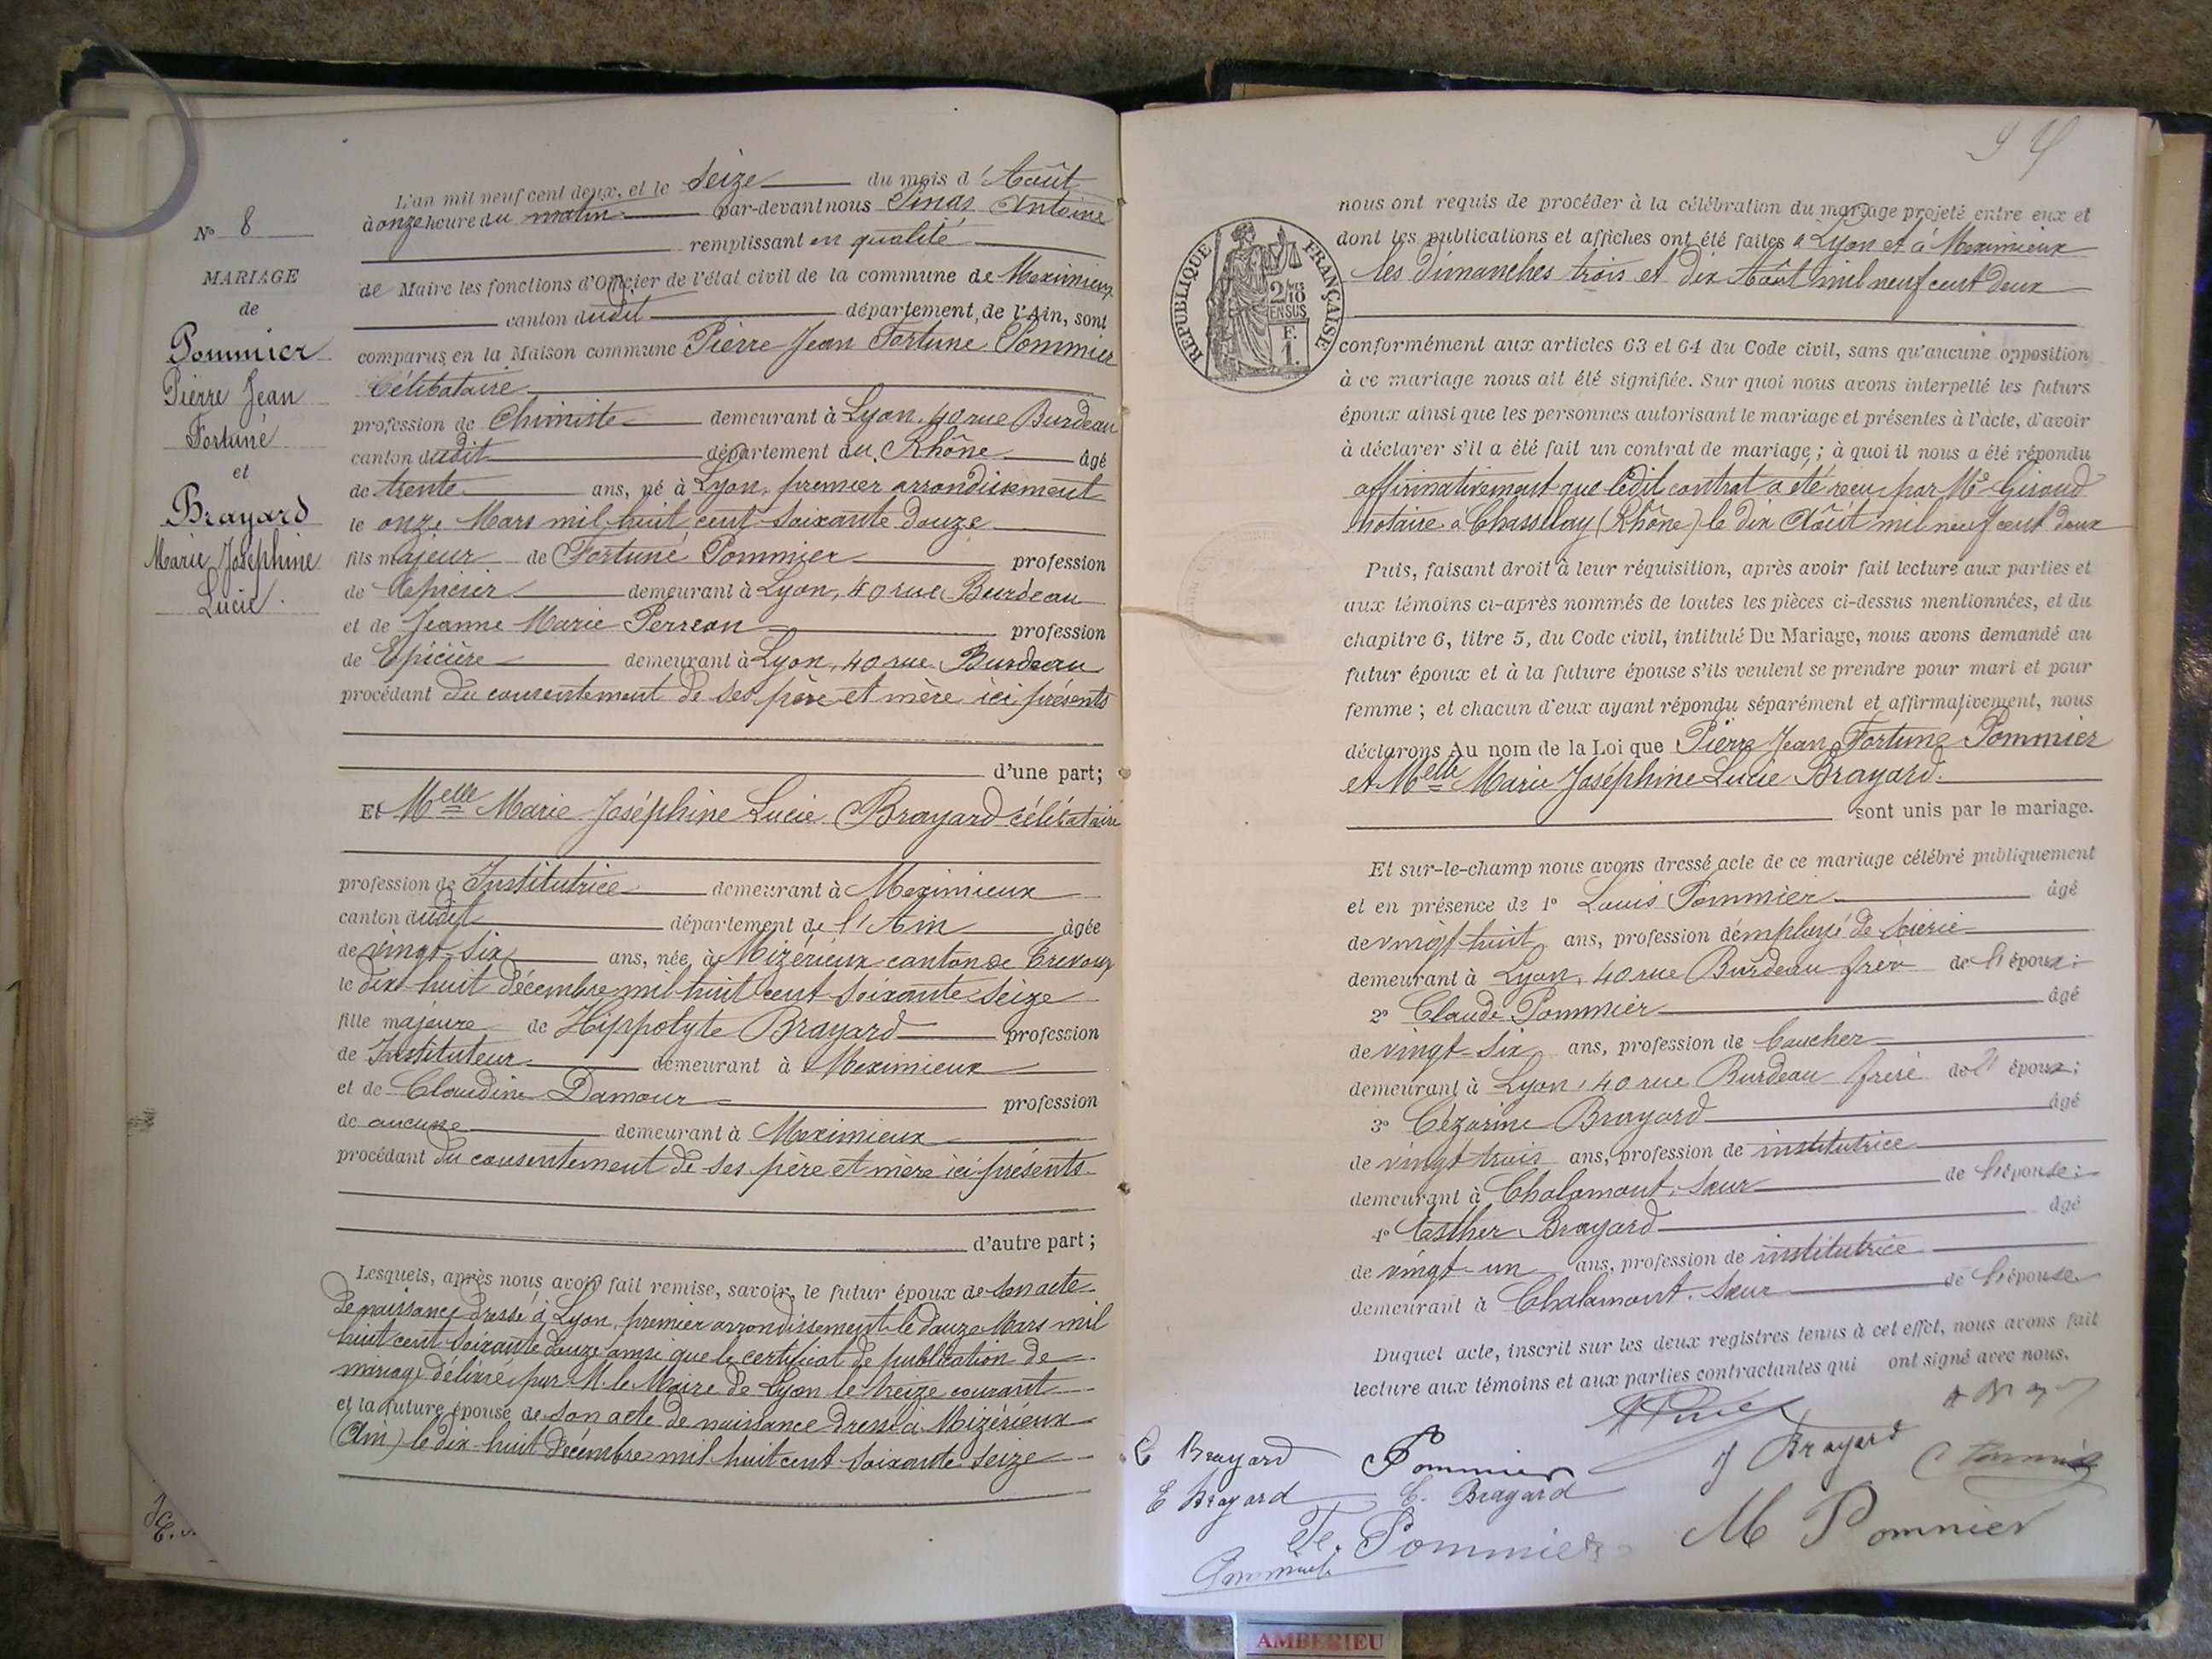 L'an mil neuf cent deux, et le seize du mois d'Août
à onze heure du matin par-devant nous Antoine
remplissant en qualité
de Maire les fonctions d'Officier de l'état civil de la commune de Meximieux
canton dudit département de l'Ain, sont
comparus en la Maison commune Pierre Jean Fortuné Pommier
Célibataire
profession de Chimiste demeurant à Lyon, 40 rue Burdeau
canton dudit département du Rhône âgé
de trente ans, né à Lyon, premier arrondissement
le onze Mars mil huit cent soixante douze
fils majeur de Fortuné Pommier profession
de Epicier demeurant à Lyon, 40 rue Burdeau
et de Jeanne Marie Perreon profession
de Epicière demeurant à Lyon, 40 rue Burdeau
procédant du consentement de ses père et mère ici présents
d'une part;
Et Melle Marie Joséphine Lucie Brayard célibataire
profession de Institutrice demeurant à Meximieux
canton dudit département de l'Ain âgée
de vingt-six ans, née à Mizérieux canton de Trévoux
le dix huit décembre mil huit cent soixante seize
fille majeure de Hippolyte Brayard profession
de Instituteur demeurant à Meximieux
et de Claudine Damour profession
de aucune demeurant à Meximieux
procédant du consentement de ses père et mère ici présents
d'autre part;
Lesquels, après nous avoir fait remise, savoir, le futur époux de son acte
de naissance dressé à Lyon, premier arrondissement le douze Mars mil
huit cent soixante douze ainsi que le certificat de publication de
mariage délivré par M. le Maire de Lyon le treize courant
et la future épouse de son acte de naissance dressé à Mizérieux
(Ain) le dix-huit Décembre mil huit cent soixante seize
No 8
MARIAGE
de
Pommier
Pierre Jean
Fortuné
et
Brayard
Marie Joséphine
Lucie.
nous ont requis de procéder à la célébration du mariage projeté entre eux et
dont les publications et affiches ont été faites à Lyon et à Meximieux
les dimanches trois et dix Août mil neuf cent deux
conformément aux articles 63 et 64 du Code civil, sans qu'aucune opposition
à ce mariage nous ait été signifiée. Sur quoi nous avons interpellé les futurs
époux ainsi que les personnes autorisant le mariage et présentes à l'acte, d'avoir
à déclarer s'il a été fait un contrat de mariage; à quoi il nous a été répondu
affirmativement que ledit contrat a été reçu par Me Giraud
notaire à Chasselay (Rhône) le dix Août mil neuf cent deux
Puis, faisant droit à leur réquisition, après avoir fait lecture aux parties et
aux témoins ci-après nommés de toutes les pièces ci-dessus mentionnées, et du
chapitre 6, titre 5, du Code civil, intitulé Du Mariage, nous avons demandé au
futur époux et à la future épouse s'ils veulent se prendre pour mari et pour
femme; et chacun d'eux ayant répondu séparément et affirmativement, nous
déclarons Au nom de la Loi que Pierre Jean Fortuné Pommier
et Melle Marie Joséphine Lucie Brayard.
sont unis par le mariage.
Et sur-le-champ nous avons dressé acte de ce mariage célébré publiquement
et en présence de 1o Louis Pommier âgé
de vingt huit ans, profession d'employé de soierie
demeurant à Lyon, 40 rue Burdeau frère de l'époux;
2o Claude Pommier âgé
de vingt-six ans, profession de Caucher
demeurant à Lyon, 40 rue Burdeau frère de l'époux;
3o Cézarine Brayard âgé
de vingt trois ans, profession de institutrice
demeurant à Chalamont, sœur de l'épouse;
4o Esther Brayard âgé
de vingt-un ans, profession de institutrice
demeurant à Chalamont. sœur de l'épouse
Duquel acte, inscrit sur les deux registres tenus à cet effet, nous avons fait
lecture aux témoins et aux parties contractantes qui ont signé avec nous.
Brayard Pommier J Brayard
E Brayard C. Brayard
Fé. Pommier M Pommier
RÉPUBLIQUE FRANÇAISE
2/10
EN SUS
F.
1.
AMBERIEU